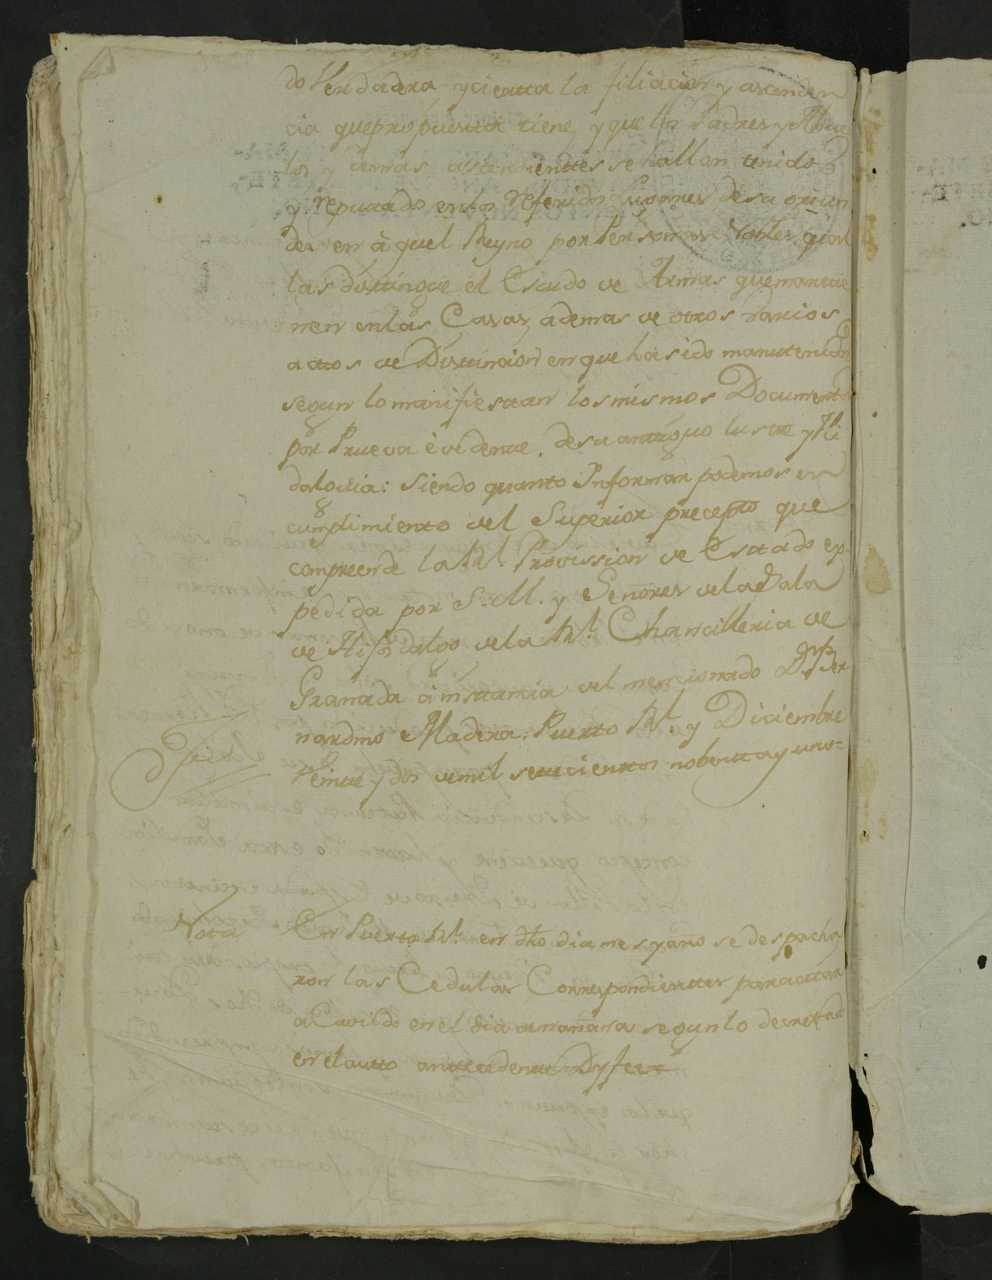 do Verdadera y cierta la filiacion y ascenden
cia que propuesta tiene y que los Padres y Abue
los y demas ascendientes se hallan tenido
y Reputado en los Referidos
des en àquel Reyno por Personas Nobles, qual
las distingue el Escudo de Armas que mantie
nen en las Casas, ademas de otros varios
actos de Distincion en que ha sido manutenido
segun lo manifiestan los mismos Documentos
por Prueva èvidente, de su antiguo lustre y Hi
dalguia: Siendo quanto Informar podemos en
cumplimiento del Superior precepto que
compreende la Rl. Provission de Estado ex
pedida por S. M. y Señores de la Sala
de Hijosdalgo de la Rl. Chancilleria de
Granada à instancia del mencionado Dn. Ber
nardino Madera. Puerto Rl. y Diciembre
Veinte y dos de mil setecientos nobenta y uno=
Nota
En Puerto Rl. en dho dia mes y año se despacha
ron las Cedulas Correspondientes para citar
a Cavildo en el dia de mañana segun lo decretado
en el auto antecedente Doy fee=